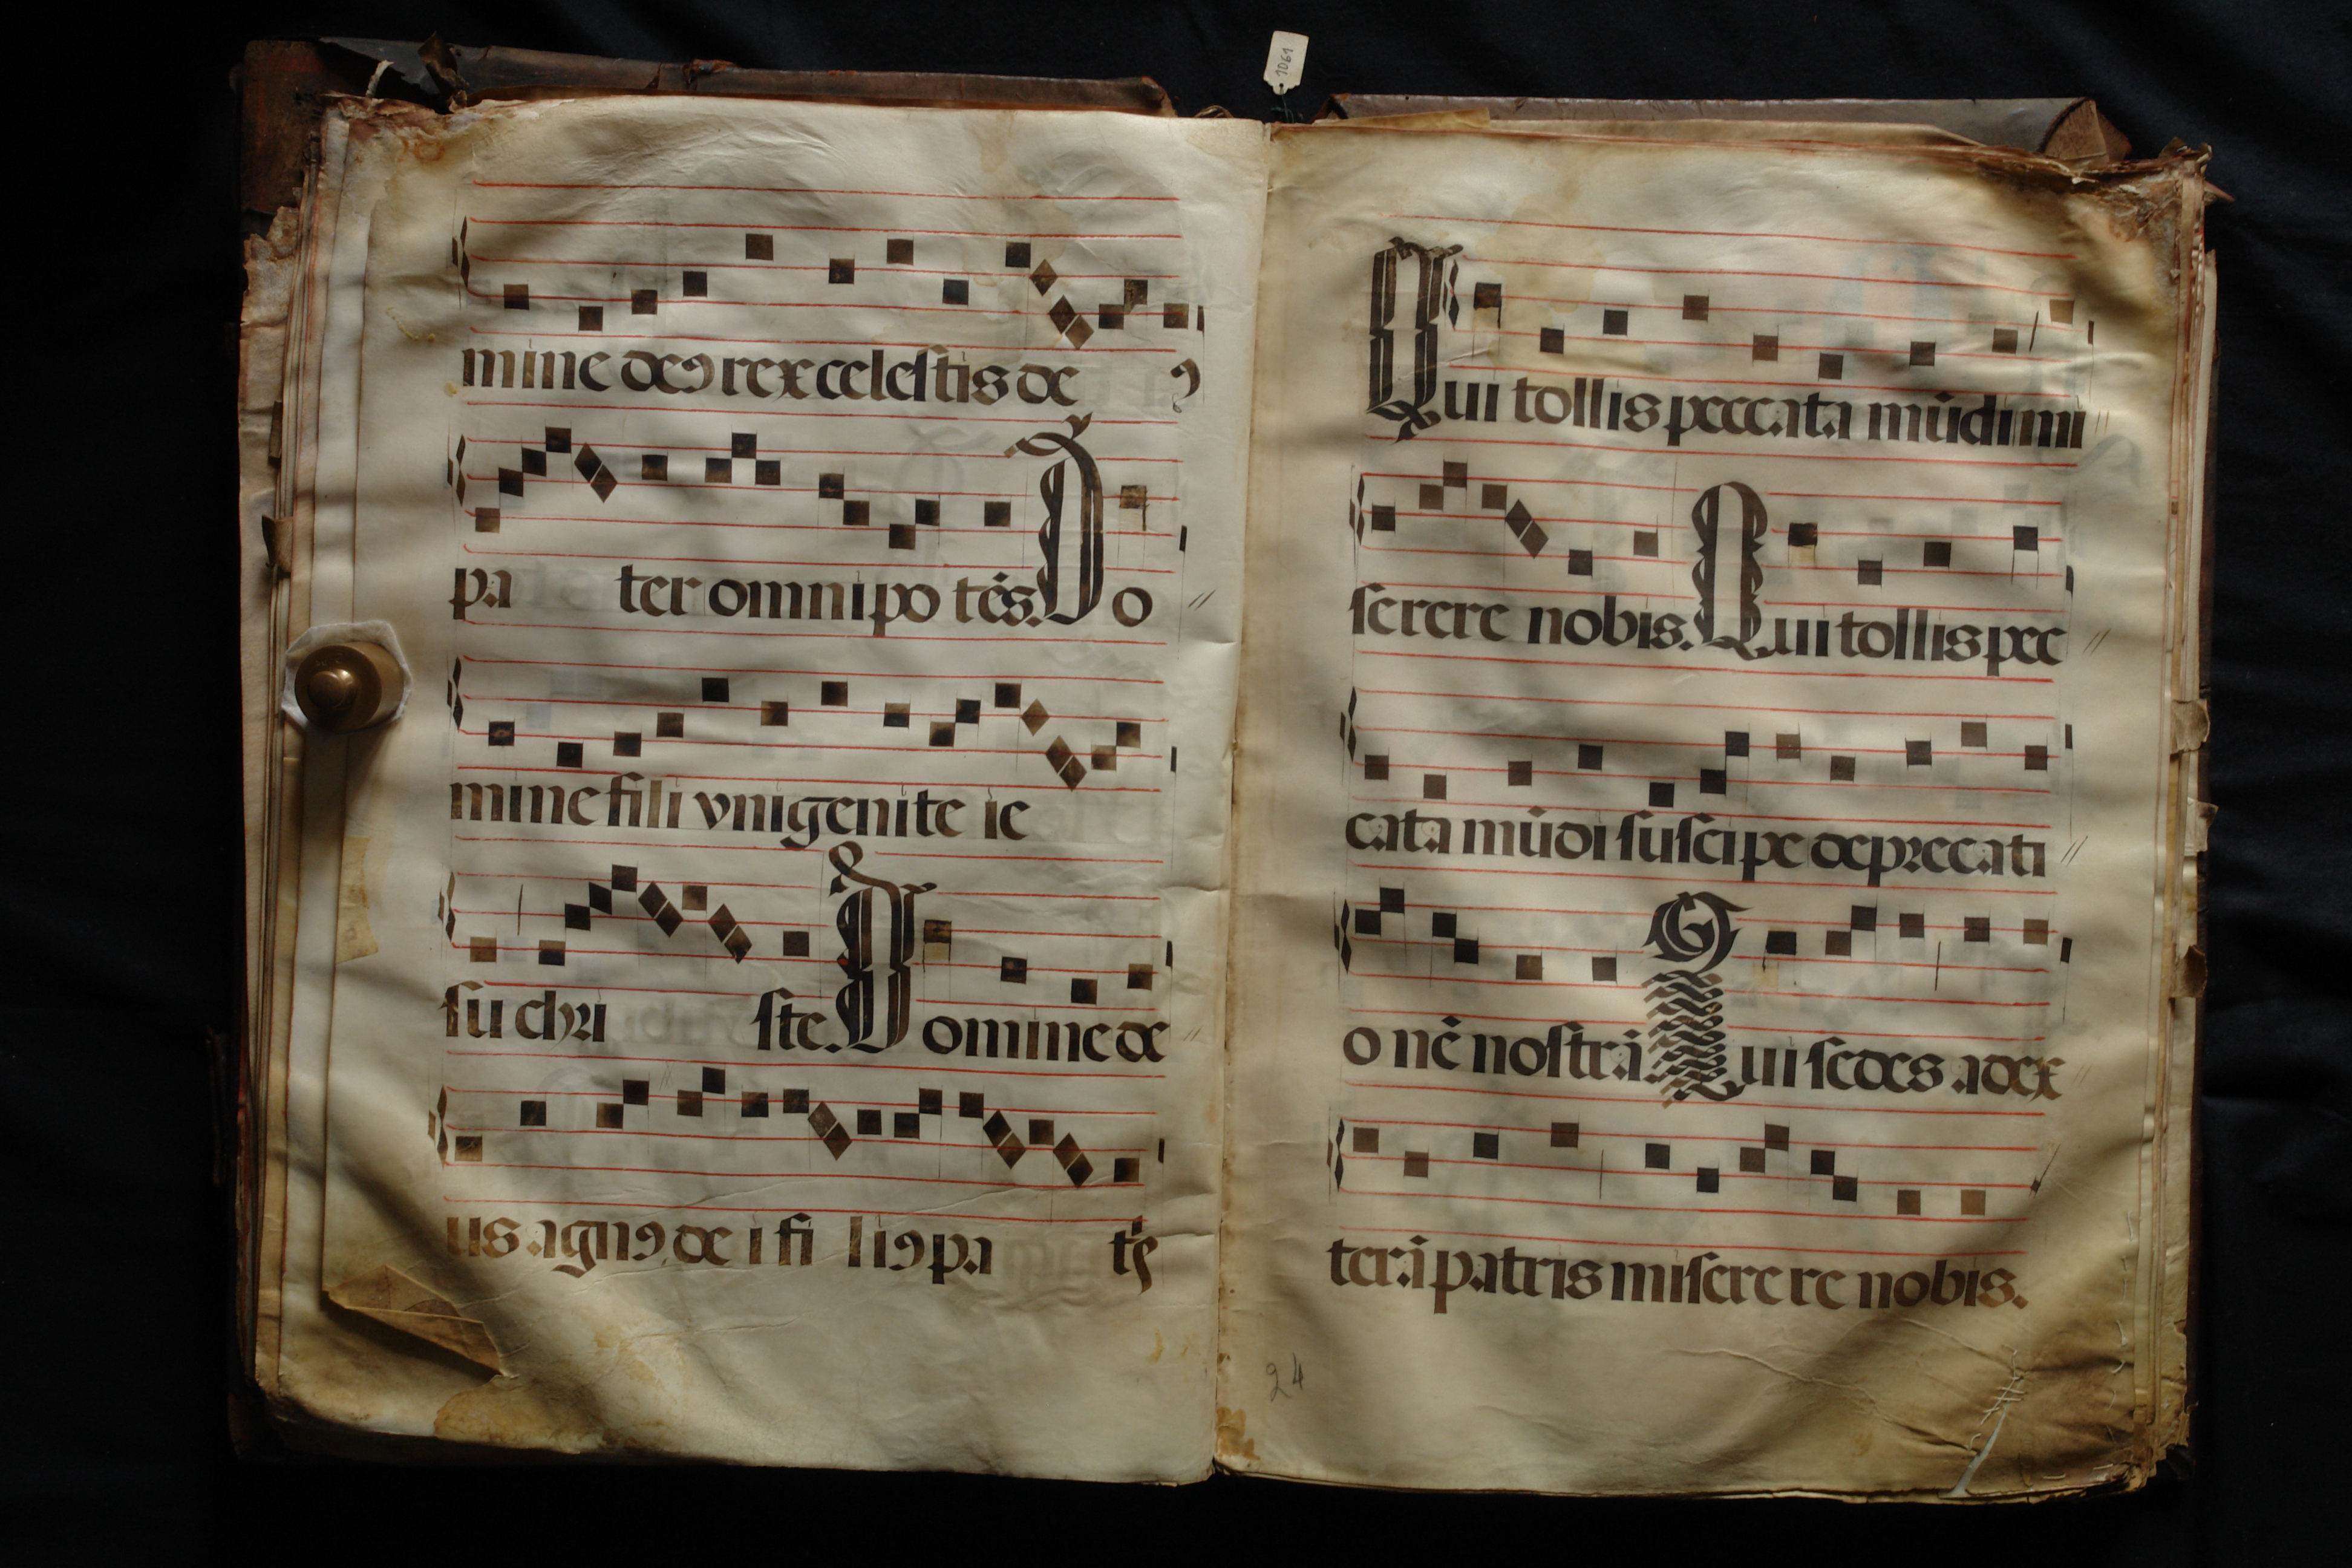 1061
mine deꝯ rex celeſtis de ꝯ
pa ter omnipo tēs. Do
mine fili vnigenite ie
ſu chꝛi ſte. Domine de
us agnꝯ de i fi liꝯ pa tꝭ
Qui tollis peccata mūdi mi
ſerere nobis. Qui tollis pec
cata mūdi ſuſcipe depꝛecati
o nē noſtrā. Qui ſedes ad ex
terā patris miſerere nobis.
24